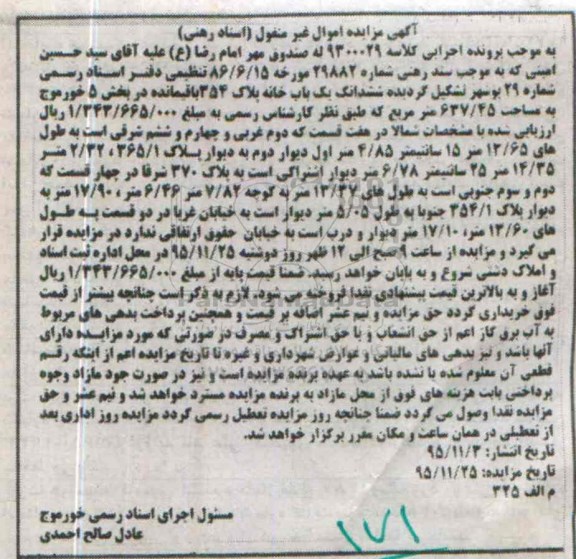 آگهی مزایده اموال غیر منقول (اسناد رهنی)
به موجب پرونده اجرایی کلاسه ۹۳۰۰۰۲۹ له صندوق مهر امام رضا (ع) علیه آقای سید حسین
امینی که به موجب سند رهنی شماره ۲۹۸۸۲ مورخه ۸۶/۶/۱۵ تنظیمی دفتر اسناد رسمی
شماره ۲۹ بوشهر تشکیل گردیده ششدانگ یک باب خانه پلاک ۳۵۴باقیمانده در بخش ۵ خورموج
به مساحت ۶۳۷/۴۵ متر مربع که طبق نظر کارشناس رسمی به مبلغ ۱/۳۴۳/۶۶۵/۰۰۰ ریال
ارزیابی شده با مشخصات شمالا در هفت قسمت که دوم غربی و چهارم و ششم شرقی است به طول
های ۱۳/۶۵ متر ۱۵ سانتیمتر ۴/۸۵ متر اول دیوار دوم به دیوار پلاک ۳۶۵/۱، ۲/۳۲ متر
۱۴/۳۵ متر ۲۵ سانتیمتر ۶/۷۸ متر دیوار اشتراکی است به پلاک ۳۷۰ شرقا در چهار قسمت که
دوم و سوم جنوبی است به طول های ۱۳/۳۷ متر به کوچه ۷/۸۲ متر ۶/۴۶ متر، ۱۷/۹۰ متر به
دیوار پلاک ۳۵۴/۱ جنوبا به طول ۵/۰۵ متر دیوار است به خیابان غربا در دو قسمت به طول
های ۱۳/۶۰ متر، ۱۷/۱۰ متر دیوار و درب است به خیابان حقوق ارتفاقی ندارد در مزایده قرار
می گیرد و مزایده از ساعت ۹ صبح الی ۱۲ ظهر روز دوشنبه ۹۵/۱۱/۲۵ در محل اداره ثبت اسناد
و املاک دشتی شروع و به پایان خواهد رسید. ضمنا قیمت پایه از مبلغ ۱/۳۴۳/۶۶۵/۰۰۰ ریال
آغاز و به بالاترین قیمت پیشنهادی نقدا فروخته می شود. لازم به ذکر است چنانچه بیشتر از قیمت
فوق خریداری گردد حق مزایده و نیم عشر اضافه بر قیمت و همچنین پرداخت بدهی های مربوط
به آب برق گاز اعم از حق انشعاب و یا حق اشتراک و مصرف در صورتی که مورد مزایده دارای
آنها باشد و نیز بدهی های مالیاتی و عوارض شهرداری و غیره تا تاریخ مزایده اعم از اینکه رقم
قطعی آن معلوم شده یا نشده باشد به عهده برنده مزایده است و نیز در صورت جود مازاد وجوه
پرداختی بابت هزینه های فوق از محل مازاد به برنده مزایده مسترد خواهد شد و نیم عشر و حق
مزایده نقدا وصول می گردد ضمنا چنانچه روز مزایده تعطیل رسمی گردد مزایده روز اداری بعد
از تعطیلی در همان ساعت و مکان مقرر برگزار خواهد شد.
تاریخ انتشار: ۹۵/۱۱/۳
تاریخ مزایده: ۹۵/۱۱/۲۵
م الف ۳۲۵
مسئول اجرای اسناد رسمی خورموج
عادل صالح احمدی
۱۷۱